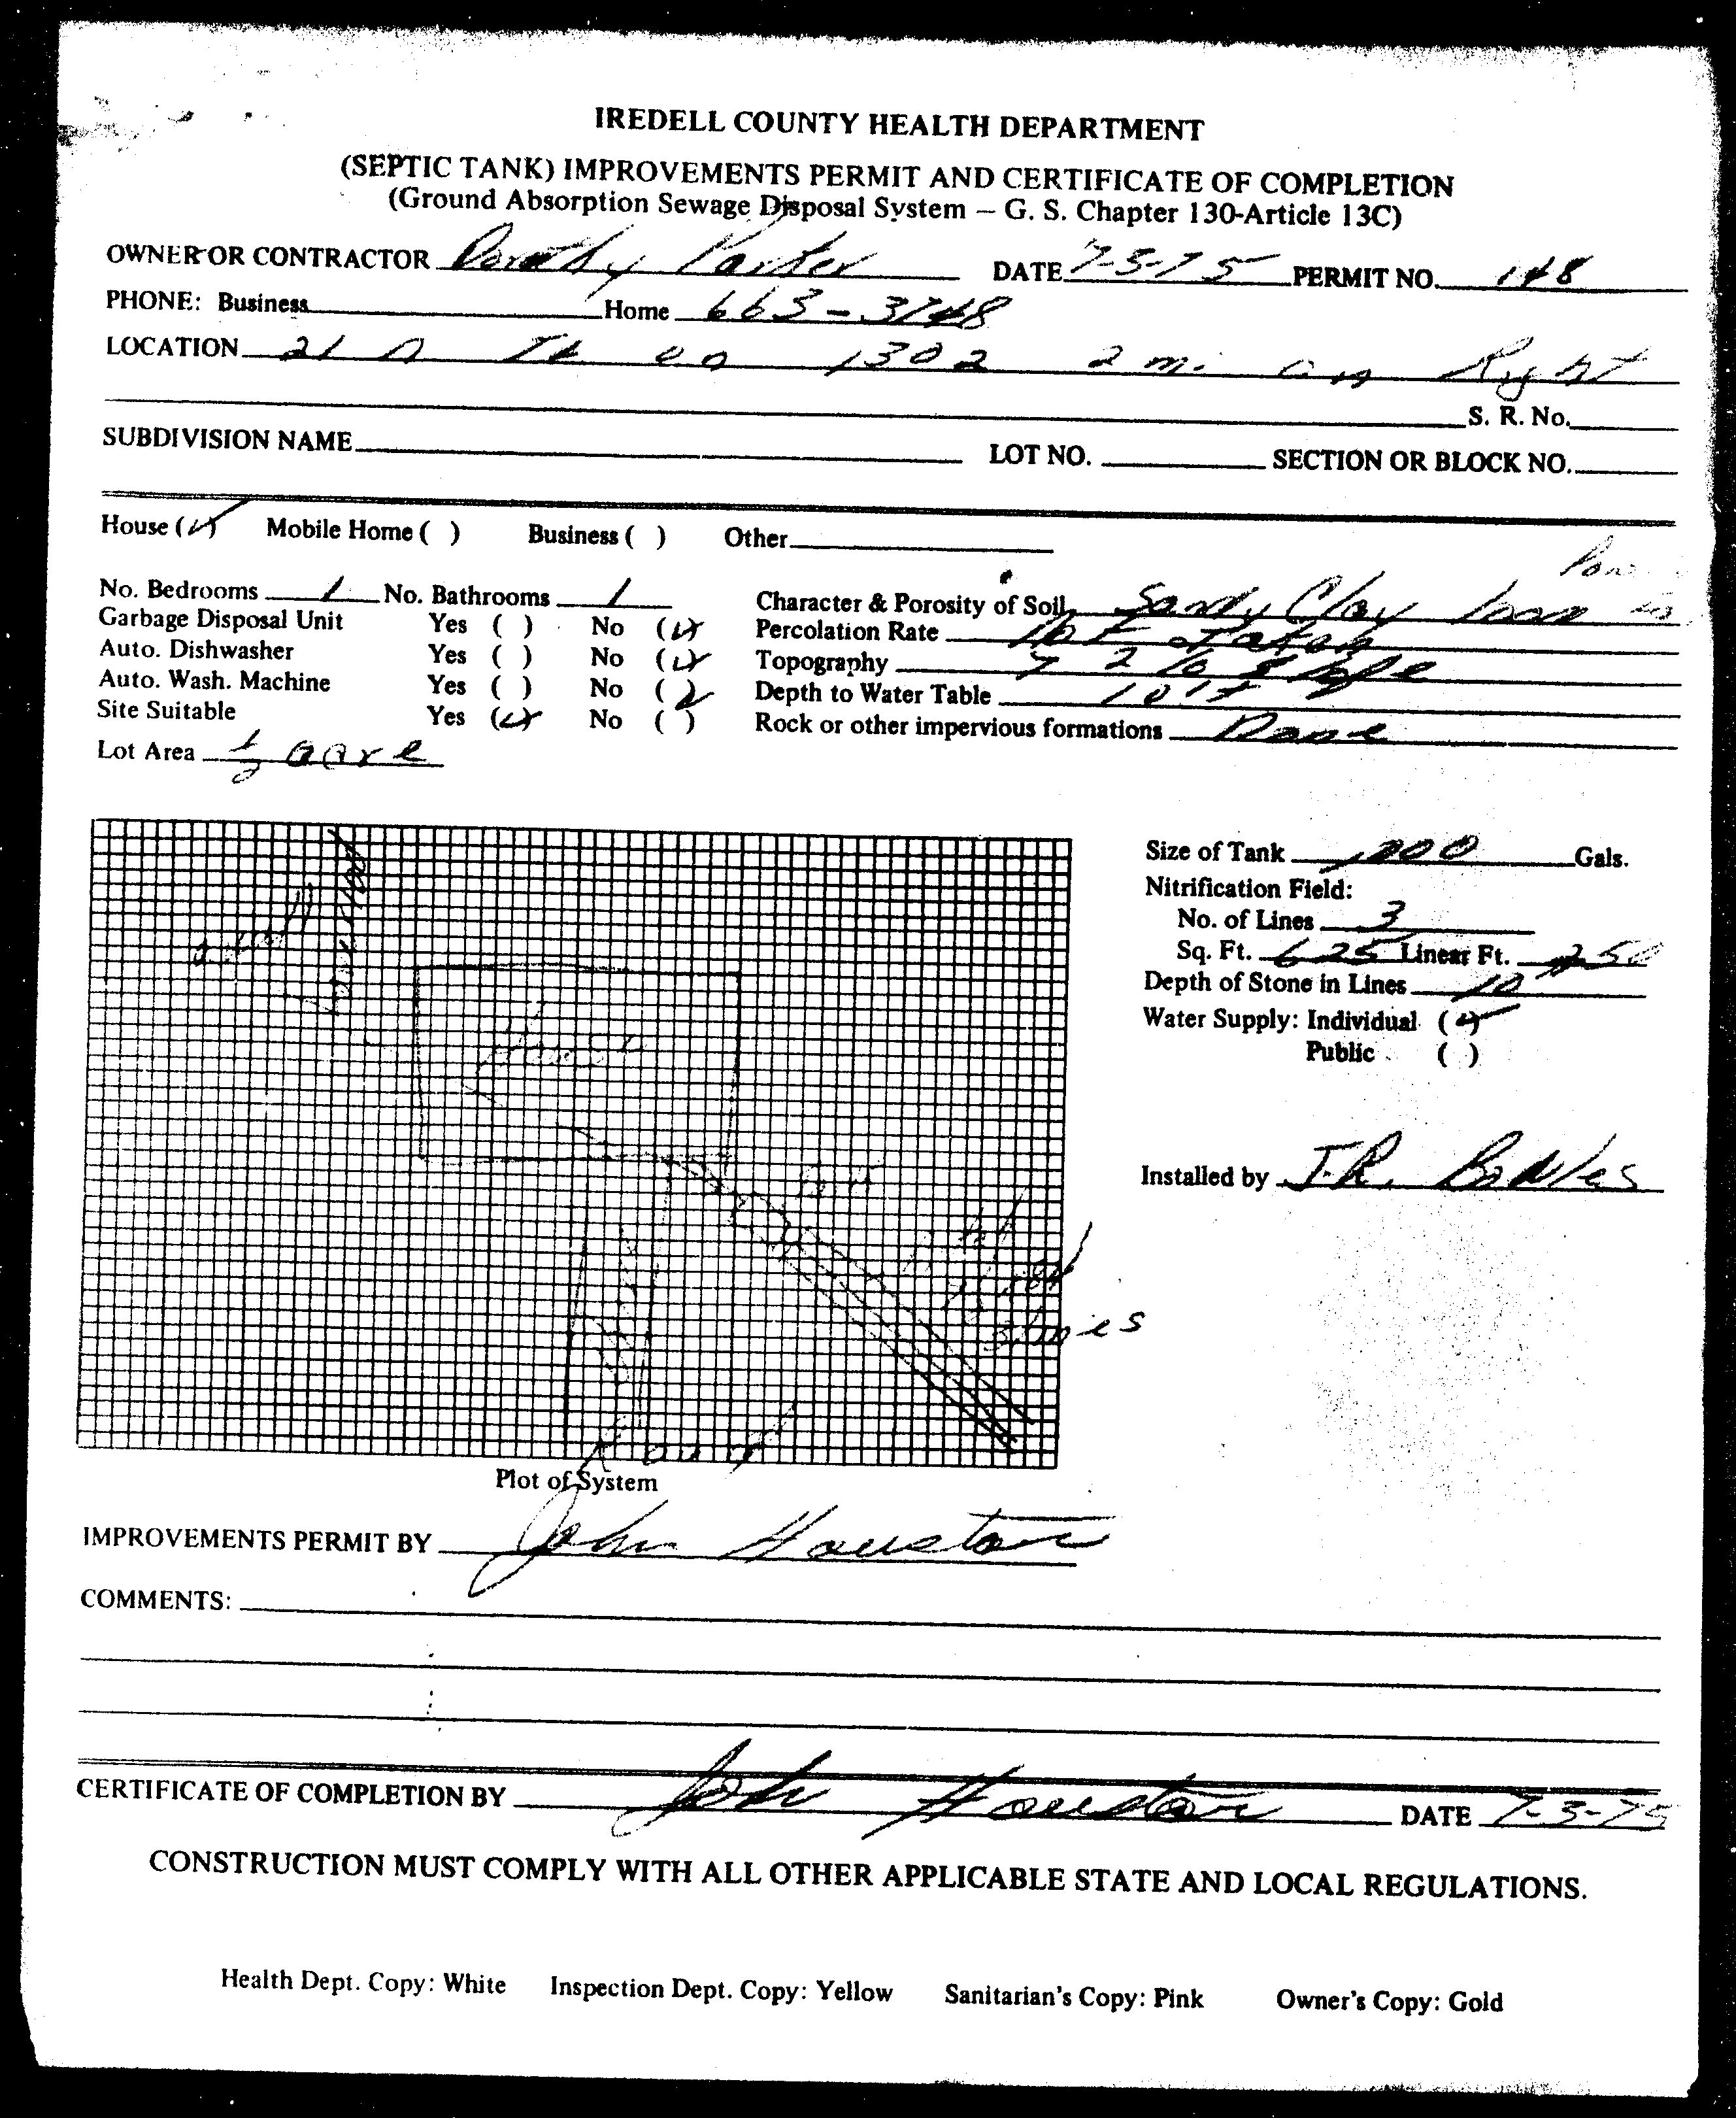 IREDELL COUNTY HEALTH DEPARTMENT
(SEPTIC TANK) IMPROVEMENTS PERMIT AND CERTIFICATE OF COMPLETION
(Ground Absorption Sewage Disposal System – G. S. Chapter 130-Article 13C)
OWNER OR CONTRACTOR Dorothy Parker DATE 7-3-75 PERMIT NO. 148
PHONE: Business Home 663-3148
LOCATION 21 1302 2 mi. on Right
S. R. No.
SUBDIVISION NAME LOT NO. SECTION OR BLOCK NO.
House (✓) Mobile Home ( ) Business ( ) Other
No. Bedrooms 1 No. Bathrooms 1 Character & Porosity of Soil Sandy Clay loam
Garbage Disposal Unit Yes ( ) No (✓) Percolation Rate
Auto. Dishwasher Yes ( ) No (✓) Topography 7 2 % Slope
Auto. Wash. Machine Yes ( ) No (✓) Depth to Water Table 10'+
Site Suitable Yes (✓) No ( ) Rock or other impervious formations None
Lot Area ½ acre
Size of Tank 1,000 Gals.
Nitrification Field:
No. of Lines 3
Sq. Ft. 625 Linear Ft. 250
Depth of Stone in Lines 10
Water Supply: Individual (✓)
Public ( )
House
Installed by J.R. Bowles
lines
Plot of System
IMPROVEMENTS PERMIT BY John Houston
COMMENTS:
CERTIFICATE OF COMPLETION BY John Houston DATE 7-3-75
CONSTRUCTION MUST COMPLY WITH ALL OTHER APPLICABLE STATE AND LOCAL REGULATIONS.
Health Dept. Copy: White Inspection Dept. Copy: Yellow Sanitarian's Copy: Pink Owner's Copy: Gold